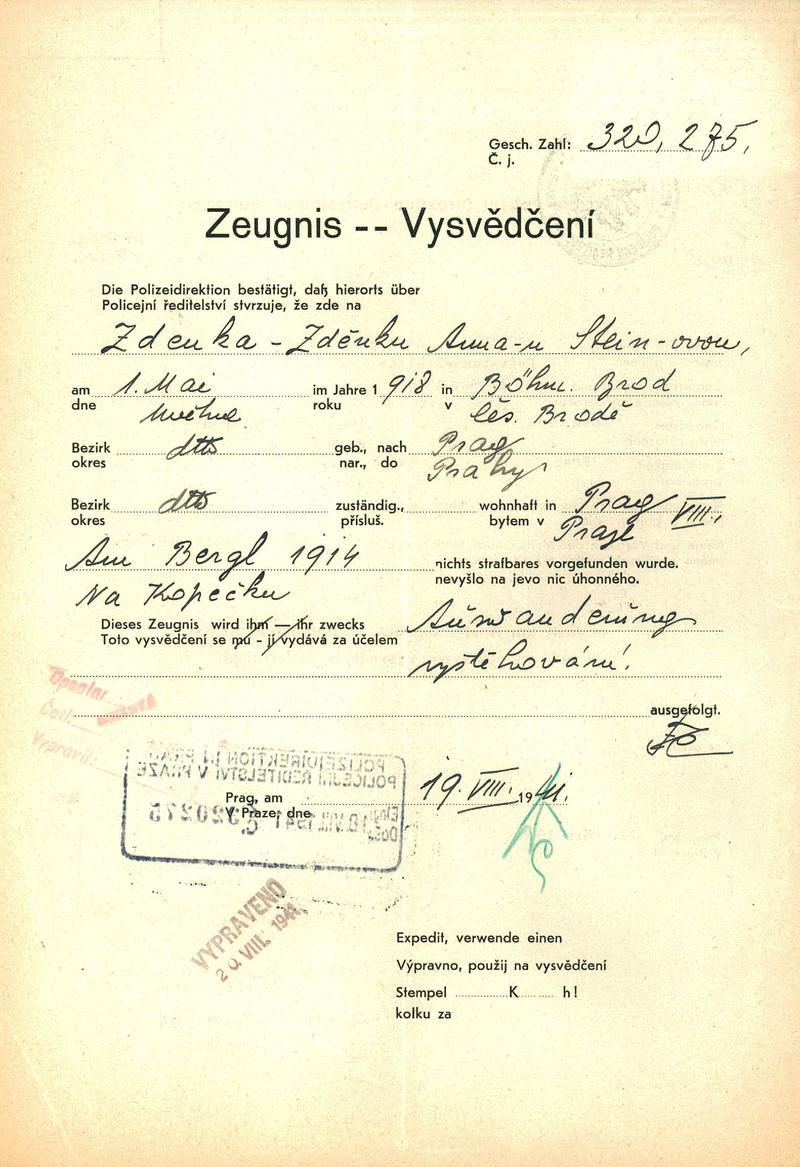 Gesch. Zahl: 320,275,
Č. j.
Zeugnis -- Vysvědčení
Die Polizeidirektion bestätigt, daß hierorts über
Policejní ředitelství stvrzuje, že zde na
Zdenka - Zděnku Anna-u Stein-ovou,
am 1. Mai im Jahre 1 918 in Böhm. Brod
dne roku v Čes. Brodě
Bezirk dtto geb., nach Prag
okres nar., do Prahy
Bezirk dtto zuständig., wohnhaft in Prag VIII.,
okres přísluš. bytem v Praze
Am Bergl 1914 nichts strafbares vorgefunden wurde.
Na Kopečku nevyšlo na jevo nic úhonného.
Dieses Zeugnis wird ihm — ihr zwecks Auswanderung
Toto vysvědčení se mu - jí vydává za účelem
vystěhování.
ausgefolgt.
Opsala:
Četl:
Vypravil:
POLIZEIDIREKTION IN PRAG
POLICEJNÍ ŘEDITELSTVÍ V PRAZE
Prag, am 19. VIII. 1941.
V Praze, dne
VYPRAVENO
20. VIII. 1941
Expedit, verwende einen
Výpravno, použij na vysvědčení
Stempel K h!
kolku za